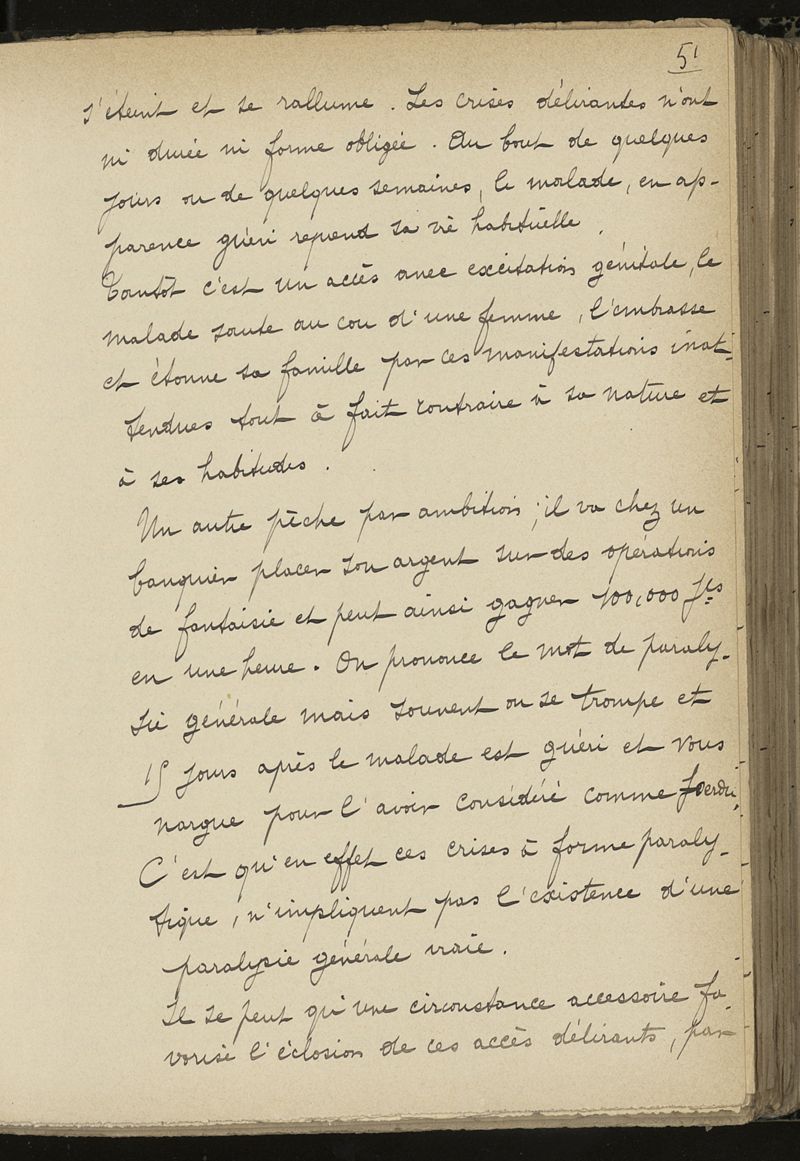 51
s'éteint et se rallume. Les crises délirantes n'ont
ni durée ni forme obligée. Au bout de quelques
jours ou de quelques semaines, le malade, en ap-
parence guéri reprend sa vie habituelle.
Tantôt c'est un accès avec excitation génitale, le
malade saute au cou d'une femme, l'embrasse
et étonne sa famille par ces manifestations inat-
tendues tout à fait contraire à sa nature et
à ses habitudes.
Un autre pèche par ambition; il va chez un
banquier placer son argent sur des opérations
de fantaisie et peut ainsi gagner 100,000 fcs
en une heure. On prononce le mot de paraly-
sie générale mais souvent on se trompe et
15 jours après le malade est guéri et vous
nargue pour l'avoir considéré comme perdu.
C'est qu'en effet ces crises à forme paraly-
tique, n'impliquent pas l'existence d'une
paralysie générale vraie.
Il se peut qu'une circonstance accessoire fa-
vorise l'éclosion de ces accès délirants, par